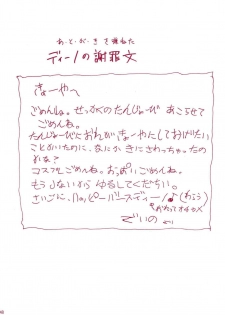 あとがきを兼ねた
ディーノの謝罪文
きょーやへ
ごめんね。せっかくのたんじょーび おこらせて
ごめんね。
たんじょーびにおれがきょーやにしてあげたい
ことかいたために、なにか きにさわっちゃったの
かな？
コスプレごめんね。おっぱいごめんね。
もうしないから ゆるしてくだちい。
さいごに、Haッピーバースディー♪
でぃの